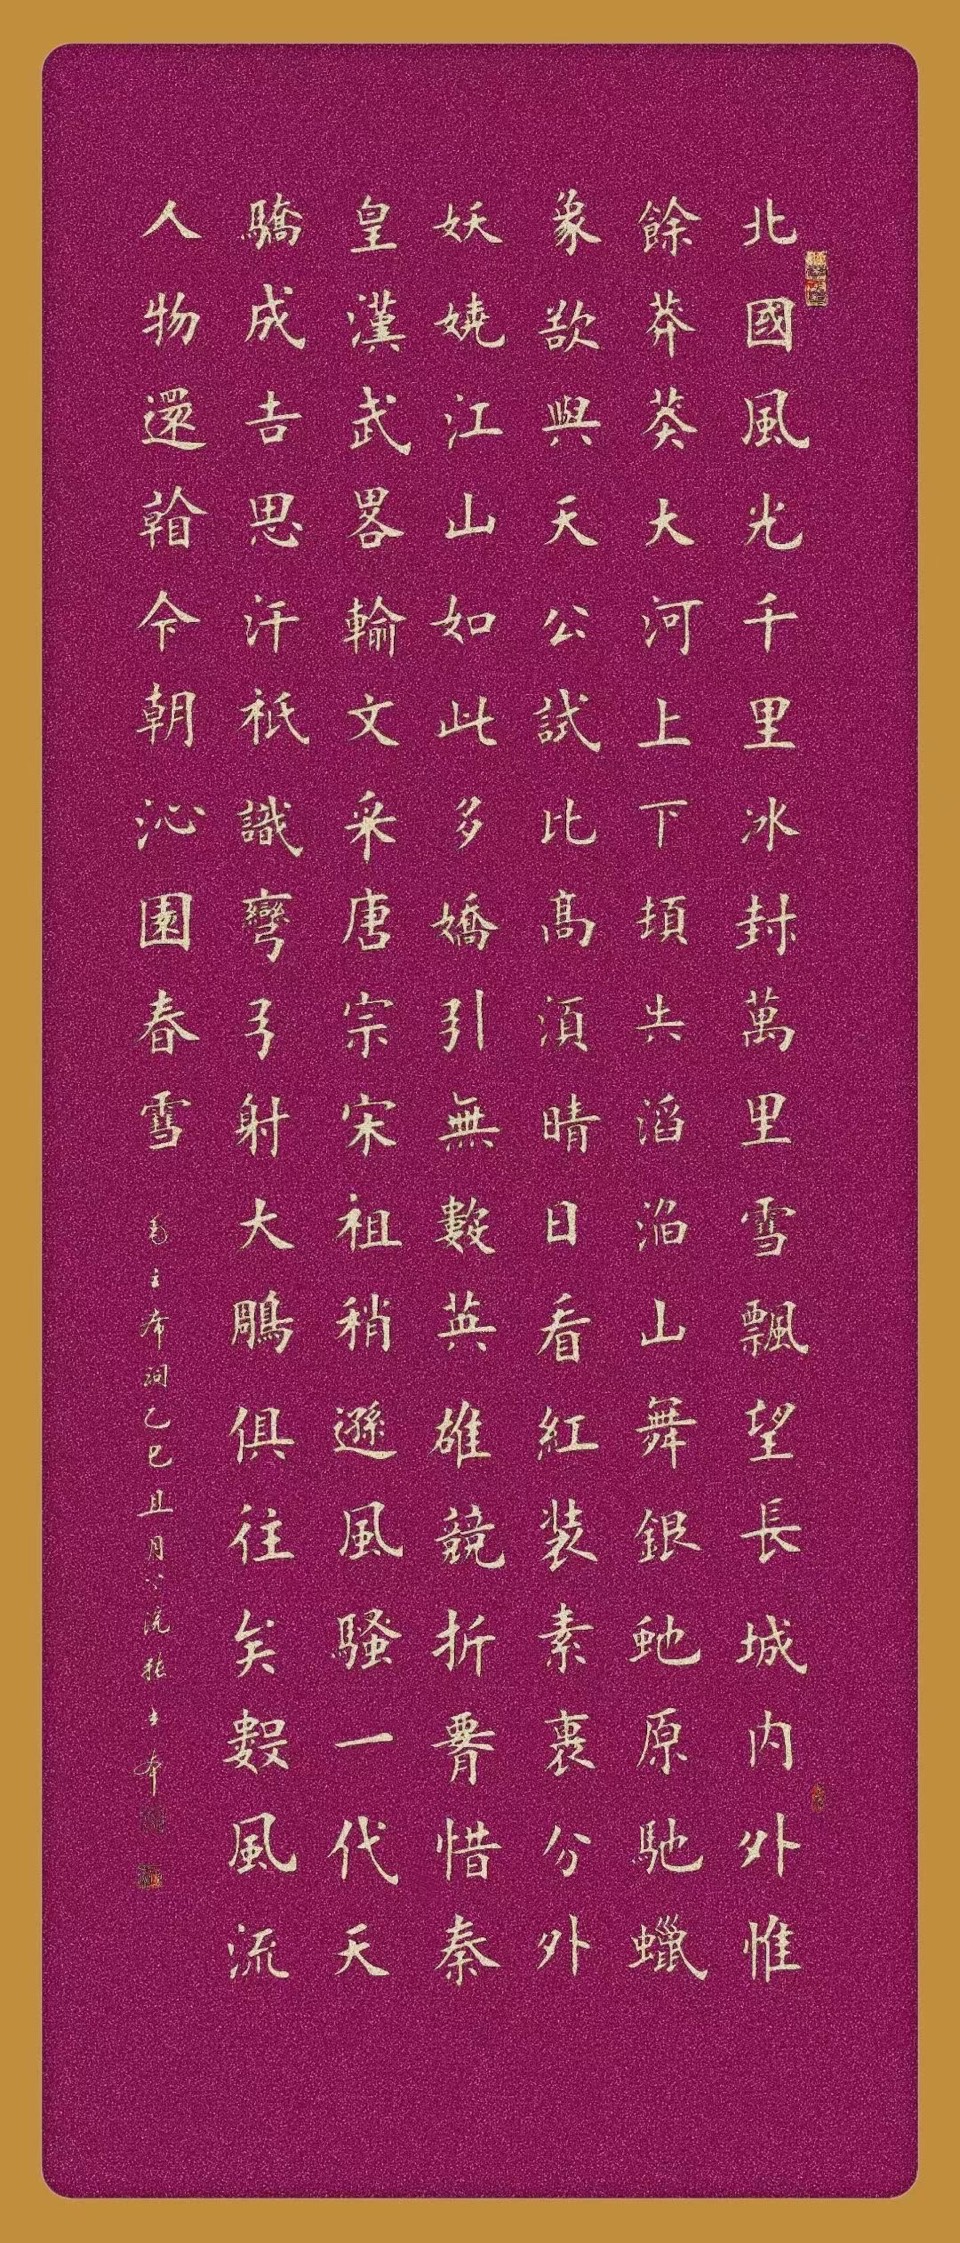 北國風光千里冰封萬里雪飄望長城内外惟
餘莽莽大河上下頓失滔滔山舞銀虵原馳蠟
象欲與天公試比髙湏晴日看紅装素裹分外
妖嬈江山如此多嬌引無數英雄競折腰惜秦
皇漢武畧輸文采唐宗宋祖稍遜風騷一代天
驕成吉思汗祇識彎弓射大鵰俱往矣數風流
人物還看今朝沁園春雪
毛主席詞乙巳且月